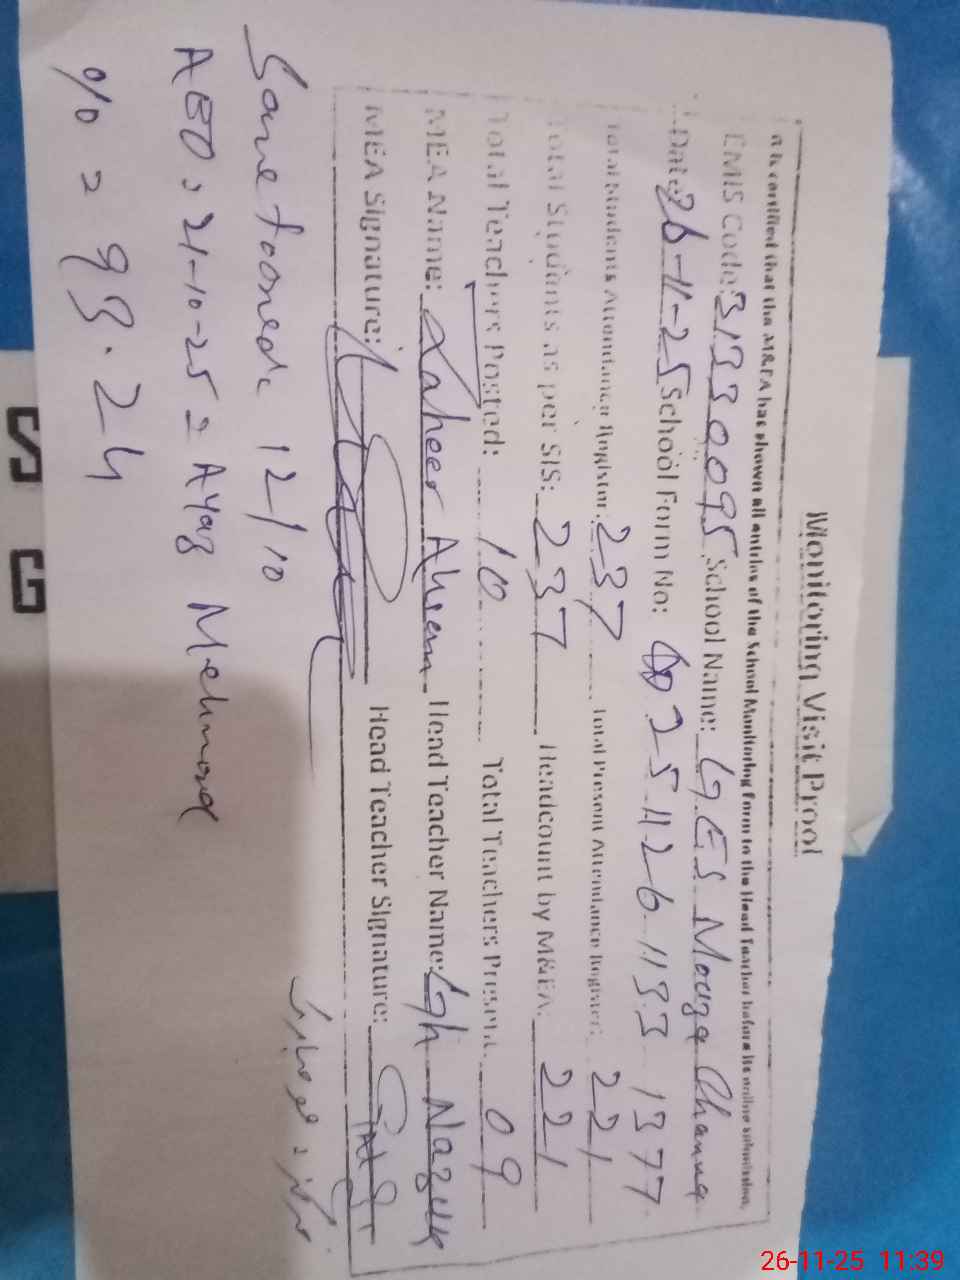 Monitoring Visit Proof
It is certified that the M&EA has shown all entries of the School Monitoring Form to the Head Teacher before its online submission.
EMIS Code: 31330095 School Name: GES Mouza Channa
Date 26-11-25 School Form No: 20251126 1133 1377
Total Students Attendance Register: 237 Total Present Attendance Register: 221
Total Students as per SIS: 237 Headcount by M&EA: 221
Total Teachers Posted: 10 Total Teachers Present: 09
MEA Name: Zaheer Ahem Head Teacher Name: Gh Nazuk
MEA Signature: Head Teacher Signature:
12/10
AEO: 21-10-25 = Ayaz Mehmood
% = 93.24
S G
26-11-25 11:39